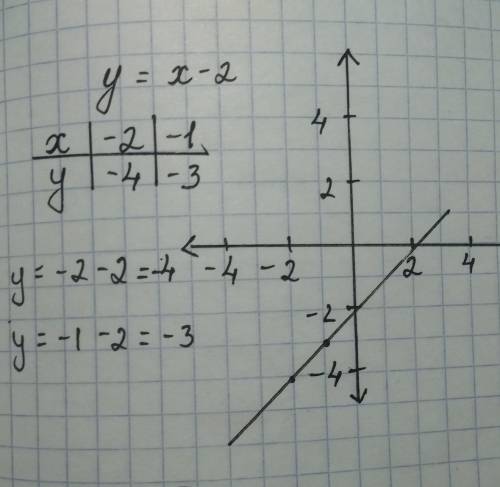 y = x - 2
x | -2 | -1
y | -4 | -3
y = -2 - 2 = -4
y = -1 - 2 = -3
4
2
-4 -2 2 4
-2
-4